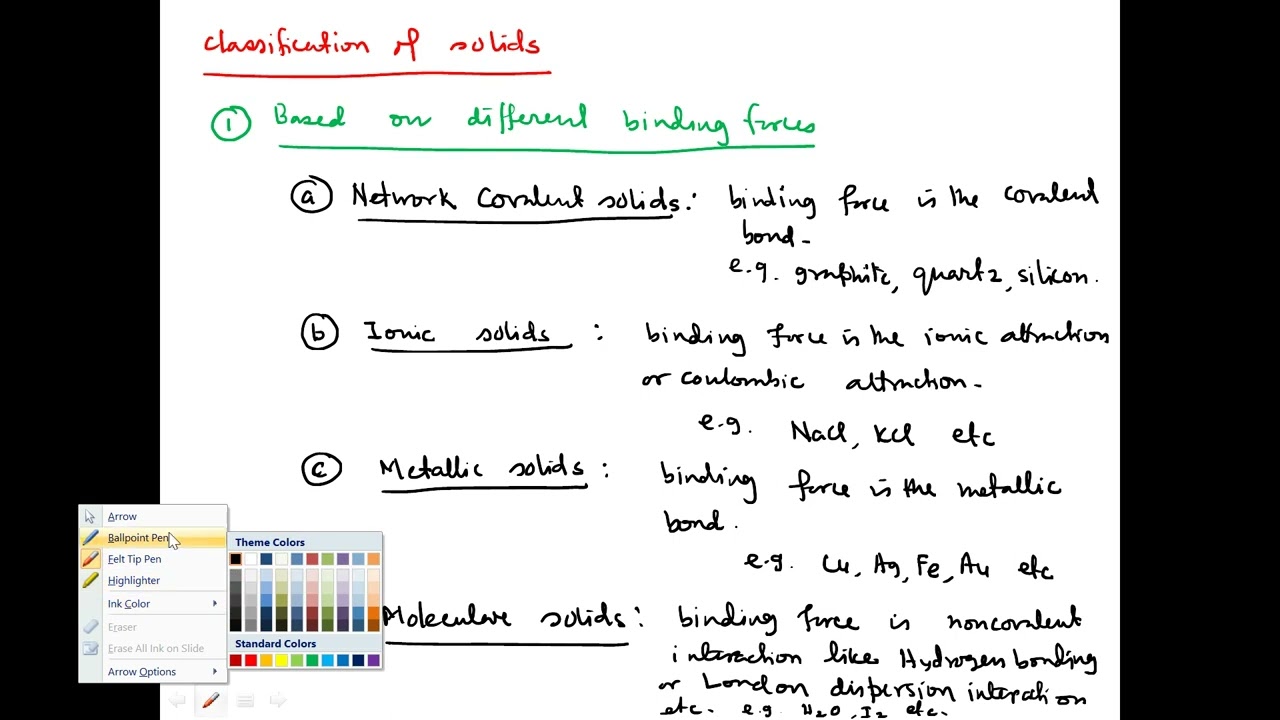 Classification of solids
① Based on different binding forces
ⓐ Network Covalent solids: binding force is the covalent
bond-
e.g. graphite, quartz, silicon.
ⓑ Ionic solids : binding force is the ionic attraction
or coulombic attraction-
e.g. NaCl, KCl etc
ⓒ Metallic solids : binding force is the metallic
bond.
e.g. Cu, Ag, Fe, Au etc
Molecular solids : binding force is noncovalent
interaction like Hydrogen bonding
or London dispersion interaction
etc. e.g. H2O, I2 etc.
Arrow
Ballpoint Pen
Felt Tip Pen
Highlighter
Ink Color
Eraser
Erase All Ink on Slide
Arrow Options
Theme Colors
Standard Colors